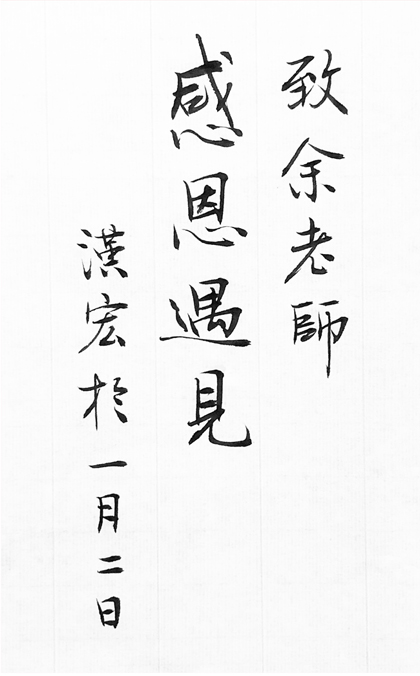 致余老師
感恩遇見
漢宏於一月二日